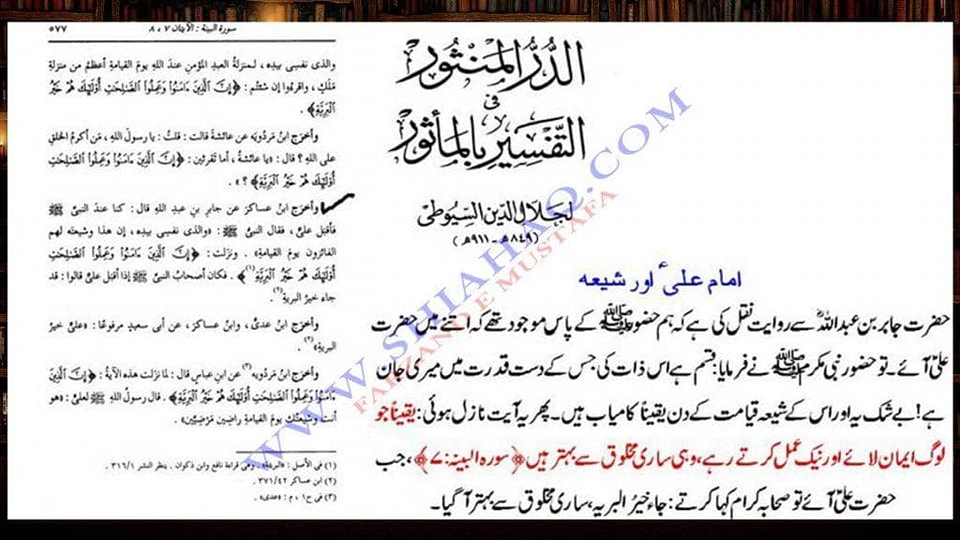 سورة البينة : الآيتان ٧ ، ٨
٥٧٧
والذى نفسى بيدِه ، لمنزلةُ العبدِ المؤمنِ عندَ اللهِ يومَ القيامةِ أعظمُ من منزلةِ
مَلَكٍ ، واقرءُوا إن شئتُم : ﴿إِنَّ الَّذِينَ ءَامَنُوا وَعَمِلُوا الصَّلِحَتِ أُوْلَئِكَ هُمْ خَيْرُ
الْبَرِيَّةِ﴾ .
وأخرَج ابنُ مَردُويَه عن عائشةَ قالت : قلتُ : يا رسولَ اللهِ ، مَن أكرمُ الخلقِ
على اللهِ ؟ قال : «يا عائشةُ ، أما تَقرَئين : ﴿إِنَّ الَّذِينَ ءَامَنُوا وَعَمِلُوا الصَّلِحَتِ
أُوْلَئِكَ هُمْ خَيْرُ الْبَرِيَّةِ﴾ ؟» .
وأخرَج ابنُ عساكرَ عن جابرِ بنِ عبدِ اللهِ قال : كنا عندَ النبىِّ ﷺ
فأقبَل علىٌّ ، فقال النبىُّ ﷺ : «والذى نفسى بيدِه ، إن هذا وشيعتَه لهم
الفائزون يومَ القيامةِ» . ونزَلت : ﴿إِنَّ الَّذِينَ ءَامَنُوا وَعَمِلُوا الصَّلِحَتِ
أُوْلَئِكَ هُمْ خَيْرُ الْبَرِيَّةِ﴾(١) . فكان أصحابُ النبىِّ ﷺ إذا أقبَل علىٌّ قالوا : قد
جاء خيرُ البريةِ(٢) .
وأخرَج ابنُ عدىٍّ ، وابنُ عساكرَ ، عن أبى سعيدٍ مرفوعًا : «علىٌّ خيرُ
البريةِ»(٢) .
وأخرَج ابنُ مَردُويَه(٣) عن ابنِ عباسٍ قال : لما نزَلت هذه الآيةُ : ﴿إِنَّ الَّذِينَ
ءَامَنُوا وَعَمِلُوا الصَّلِحَتِ أُوْلَئِكَ هُمْ خَيْرُ الْبَرِيَّةِ﴾ . قال رسولُ اللهِ ﷺ لعلىٍّ : «هو
أنت وشيعتُك يومَ القيامةِ راضِين مَرْضِيِّين» .
(١) فى الأصل : «البريئة» . وهى قراءة نافع وابن ذكوان . ينظر النشر ٣١٦/١ .
(٢) ابن عساكر ٣٧١/٤٢ .
(٣) فى ح١ ، م : «عدى» .
الدُّرُّ المَنْثُور
فى
التَّفْسِيرِ بِالمَأْثُور
لجَلَال الدِّين السِّيُوطِيّ
(٨٤٩هـ - ٩١١هـ)
امام علیؑ اور شیعہ
حضرت جابر بن عبداللہؓ سے روایت نقل کی ہے کہ ہم حضور ﷺ کے پاس موجود تھے کہ اتنے میں حضرت
علیؑ آئے۔ تو حضور نبی مکرم ﷺ نے فرمایا: قسم ہے اس ذات کی جس کے دست قدرت میں میری جان
ہے! بے شک یہ اور اس کے شیعہ قیامت کے دن یقیناً کامیاب ہیں۔ پھر یہ آیت نازل ہوئی: یقیناً جو
لوگ ایمان لائے اور نیک عمل کرتے رہے، وہی ساری مخلوق سے بہتر ہیں ﴿سورہ البینہ: ۷﴾، جب
حضرت علیؑ آئے تو صحابہ کرام کہا کرتے: جاء خیرُ البریہ، ساری مخلوق سے بہتر آ گیا۔
WWW.SHIAHAQ.COM
FARZAND E MUSTAFA